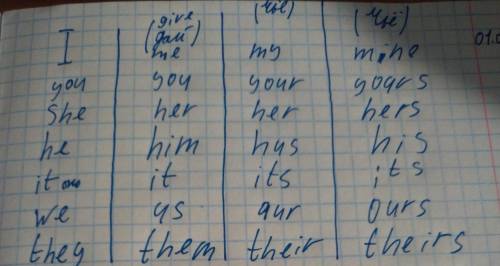 (give (чьё) (чьё)
I дай) me my mine 01.0
you you your yours
she her her hers
he him hus his
it it its its
we us our ours
they them their theirs